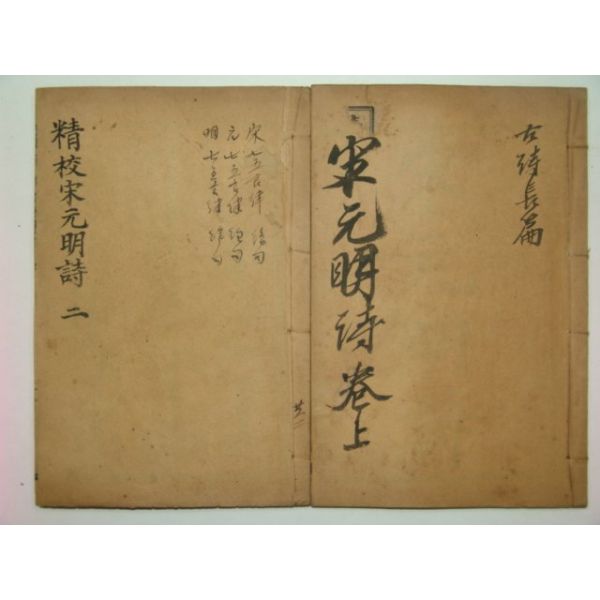 古詩長篇
宋元明詩卷上
宋 七五古律 絶句
元 七五古律 絶句
明 七五古律 絶句
精校宋元明詩 二